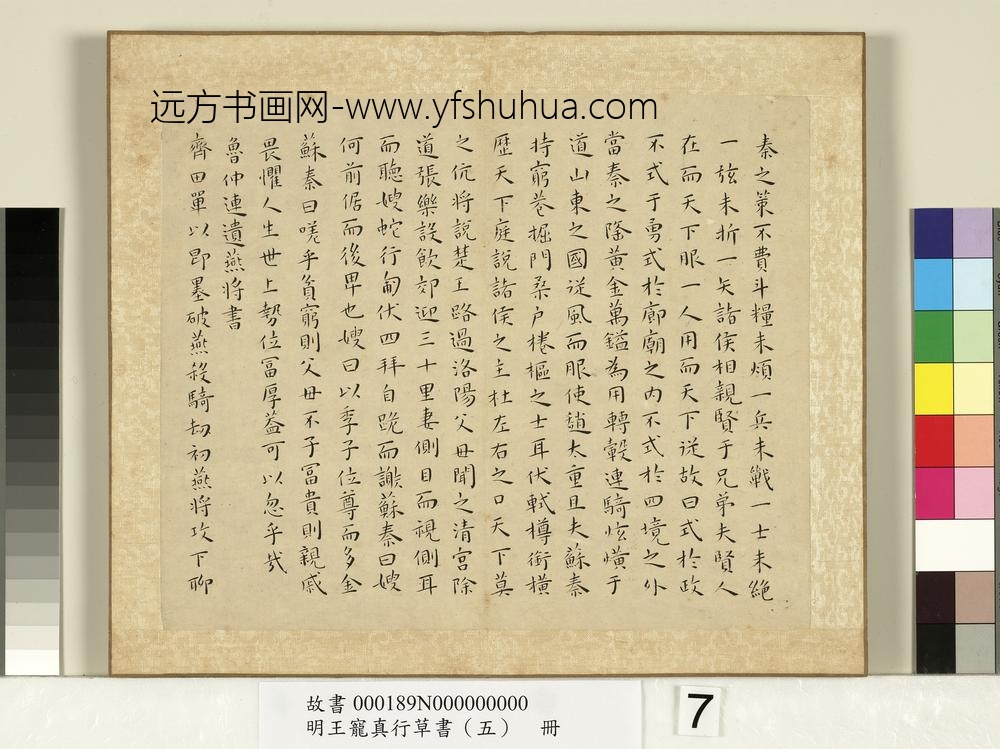 远方书画网-www.yfshuhua.com
秦之策不費斗糧未煩一兵未戰一士未絕
一弦未折一矢諸侯相親賢于兄弟夫賢人
在而天下服一人用而天下從故曰式於政
不式于勇式於廊廟之内不式於四境之外
當秦之隆黃金萬鎰為用轉轂連騎炫熿于
道山東之國從風而服使趙大重且夫蘇秦
特窮巷掘門桑户棬樞之士耳伏軾樽銜橫
歷天下庭說諸侯之主杜左右之口天下莫
之伉將說楚王路過洛陽父母聞之清宮除
道張樂設飲郊迎三十里妻側目而視側耳
而聽嫂蛇行匍伏四拜自跪而謝蘇秦曰嫂
何前倨而後卑也嫂曰以季子位尊而多金
蘇秦曰嗟乎貧窮則父母不子冨貴則親戚
畏懼人生世上勢位冨厚蓋可以忽乎哉
魯仲連遺燕將書
齊田單以即墨破燕殺騎劫初燕將攻下聊
故書 000189N000000000
明王寵真行草書（五） 冊
7